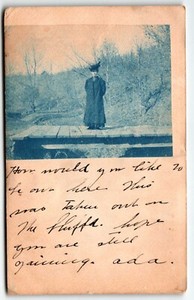 How would you like to
be out here. This
was taken out on
the Bluffs. hope
you are still
gaining. ada.